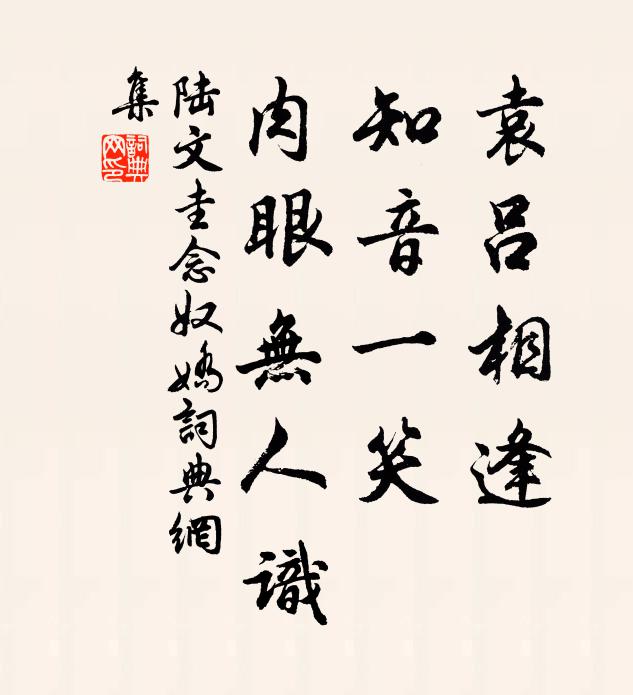 袁呂相逢
知音一笑
肉眼無人識
陸文圭念奴嬌詞典網
集
詞典網印